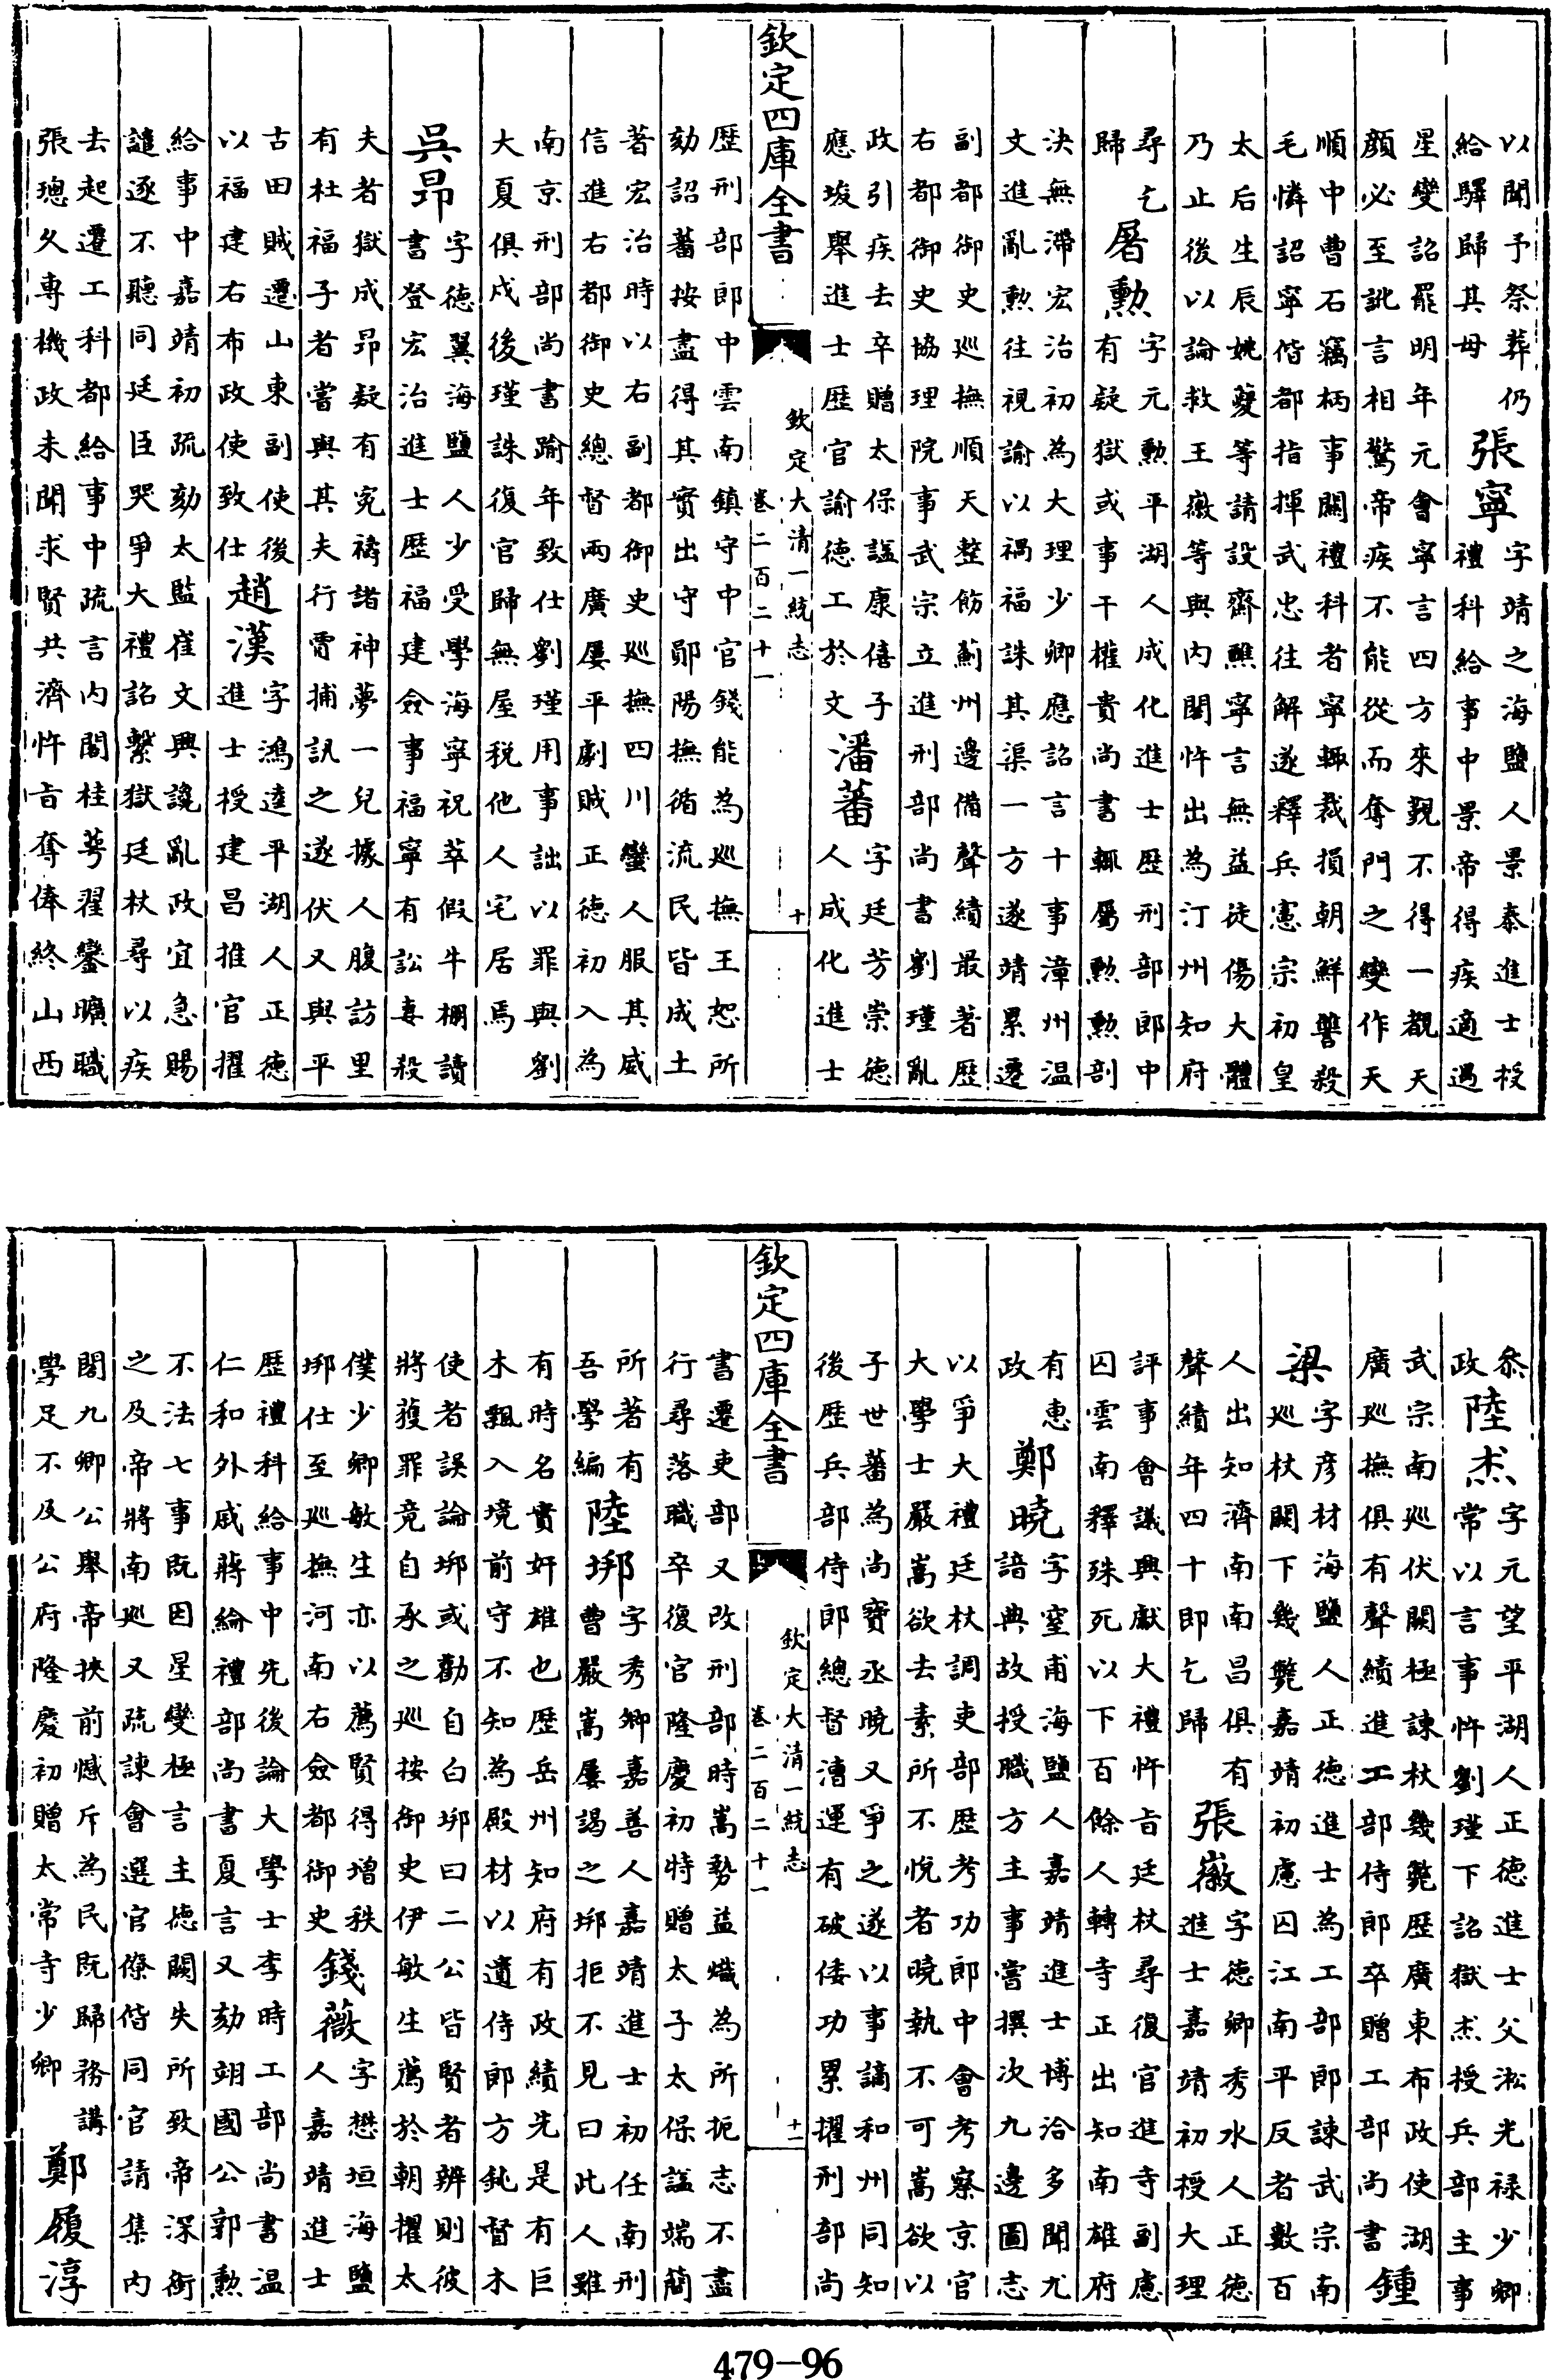 以聞予祭葬仍
給驛歸其母
張寧
字靖之海鹽人景泰進士授
禮科給事中景帝得疾適遇
星變詔罷明年元會寧言四方來覲不得一覩天
顔必至訛言相驚帝疾不能從而奪門之變作天
順中曹石竊柄事關禮科者寧輒裁損朝鮮讐殺
毛憐詔寧偕都指揮武忠往解遂釋兵憲宗初皇
太后生辰姚夔等請設齋醮寧言無益徒傷大體
乃止後以論救王徽等與內閣忤出為汀州知府
尋乞
歸
屠勳
字元勳平湖人成化進士歷刑部郎中
有疑獄或事干權貴尚書輒屬勳勳剖
決無滯宏治初為大理少卿應詔言十事漳州温
文進亂勳往視諭以禍福誅其渠一方遂靖累遷
副都御史巡撫順天整飭薊州邊備聲績最著歷
右都御史協理院事武宗立進刑部尚書劉瑾亂
政引疾去卒贈太保諡康僖子
應埈舉進士歷官諭德工於文
潘蕃
字廷芳崇德
人成化進士
欽定四庫全書
欽定大清一統志
卷二百二十一
十
歷刑部郎中雲南鎮守中官錢能為巡撫王恕所
劾詔蕃按盡得其實出守鄖陽撫循流民皆成土
著宏治時以右副都御史巡撫四川蠻人服其威
信進右都御史總督兩廣屢平劇賊正德初入為
南京刑部尚書踰年致仕劉瑾用事詘以罪與劉
大夏俱戍後瑾誅復官歸無屋稅他人宅居焉
吳昂
字德翼海鹽人少受學海寧祝萃假牛棚讀
書登宏治進士歷福建僉事福寧有訟妻殺
夫者獄成昂疑有寃禱諸神夢一兒據人腹訪里
有杜福子者嘗與其夫行賈捕訊之遂伏又與平
古田賊遷山東副使後
以福建右布政使致仕
趙漢
字鴻逵平湖人正德
進士授建昌推官擢
給事中嘉靖初疏劾太監崔文興讒亂政宜急賜
譴逐不聽同廷臣哭爭大禮詔繫獄廷杖尋以疾
去起遷工科都給事中疏言內閣桂萼翟鑾曠職
張璁久專機政未聞求賢共濟忤旨奪俸終山西
叅
政
陸杰
字元望平湖人正德進士父淞光禄少卿
常以言事忤劉瑾下詔獄杰授兵部主事
武宗南巡伏闕極諫杖幾斃歷廣東布政使湖
廣巡撫俱有聲績進工部侍郎卒贈工部尚書
鍾
梁
字彦材海鹽人正德進士為工部郎諫武宗南
巡杖闕下幾斃嘉靖初慮囚江南平反者數百
人出知濟南南昌俱有
聲績年四十即乞歸
張㠢
字德卿秀水人正德
進士嘉靖初授大理
評事會議興獻大禮忤旨廷杖尋復官進寺副慮
囚雲南釋殊死以下百餘人轉寺正出知南雄府
有惠
政
鄭曉
字窒甫海鹽人嘉靖進士博洽多聞尤
諳典故授職方主事嘗撰次九邊圖志
以爭大禮廷杖調吏部歷考功郎中會考察京官
大學士嚴嵩欲去素所不悅者曉執不可嵩欲以
子世蕃為尚寶丞曉又爭之遂以事謫和州同知
後歷兵部侍郎總督漕運有破倭功累擢刑部尚
欽定四庫全書
欽定大清一統志
卷二百二十一
十一
書遷吏部又改刑部時嵩勢益熾為所扼志不盡
行尋落職卒復官隆慶初特贈太子太保諡端簡
所著有
吾學編
陸垹
字秀卿嘉善人嘉靖進士初任南刑
曹嚴嵩屢謁之垹拒不見曰此人雖
有時名實奸雄也歷岳州知府有政績先是有巨
木飄入境前守不知為殿材以遺侍郎方鈍督木
使者誤論垹或勸自白垹曰二公皆賢者辨則彼
將獲罪竟自承之巡按御史伊敏生薦於朝擢太
僕少卿敏生亦以薦賢得增秩
垹仕至巡撫河南右僉都御史
錢薇
字懋垣海鹽
人嘉靖進士
歷禮科給事中先後論大學士李時工部尚書温
仁和外戚蔣綸禮部尚書夏言又劾翊國公郭勲
不法七事既因星變極言主德闕失所致帝深銜
之及帝將南巡又疏諫會選官僚偕同官請集內
閣九卿公舉帝挾前憾斥為民既歸務講
學足不及公府隆慶初贈太常寺少卿
鄭履淳
479-96